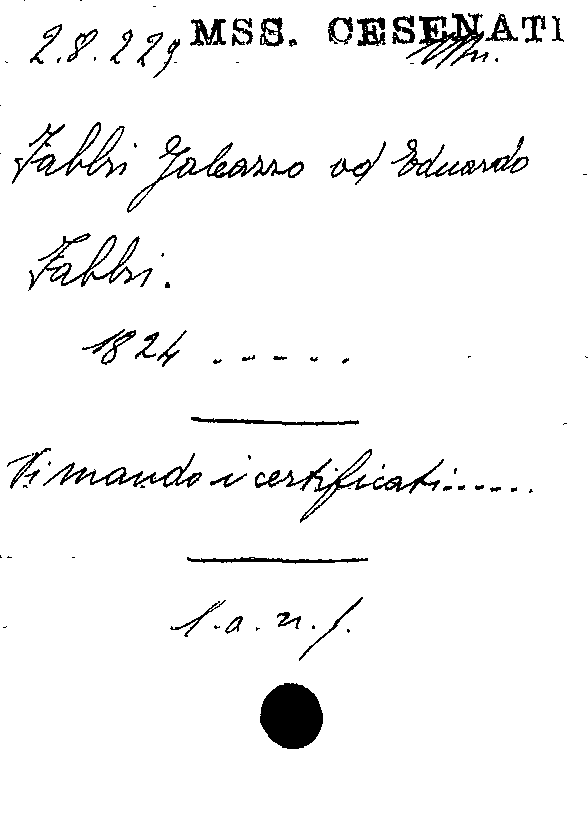 MSS. CESENATI
2.8.229
Fabbri Galeazzo ad Eduardo
Fabbri.
1824 . . . . .
Vi mando i certificati......
l. a. n. f.